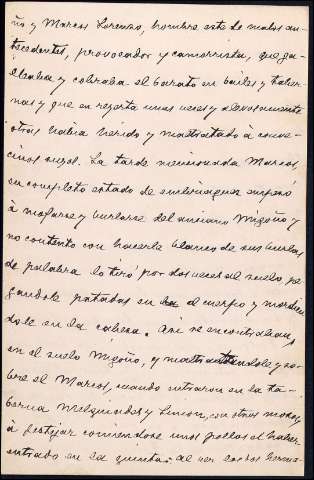 ño y Marcos Lorenzo, hombre este de malos an-
tecedentes, provocador y camorrista, que ga-
lleaba y cobraba el barato en bailes y taber-
nas y que en reyerta unas veces y alevosamente
otras habia herido y maltratado à conve-
cinos suyos. La tarde mencionada Marcos,
en completo estado de embriaguez empezó
à mofarse y burlarse del anciano Migoño y
no contento con hacerle blanco de sus burlas
de palabra lo tiró por dos veces al suelo, pe-
gandole patadas en el cuerpo y mordien-
dole en la cabeza. Asi se encontraban,
en el suelo Migoño, y maltratandole y so-
bre el Marcos, cuando entraron en la ta-
berna Melquiades y Simon, con otros mozos,
à festejar comiendose unos pollos el haber
entrado en la quinta. al ver los dos herma-